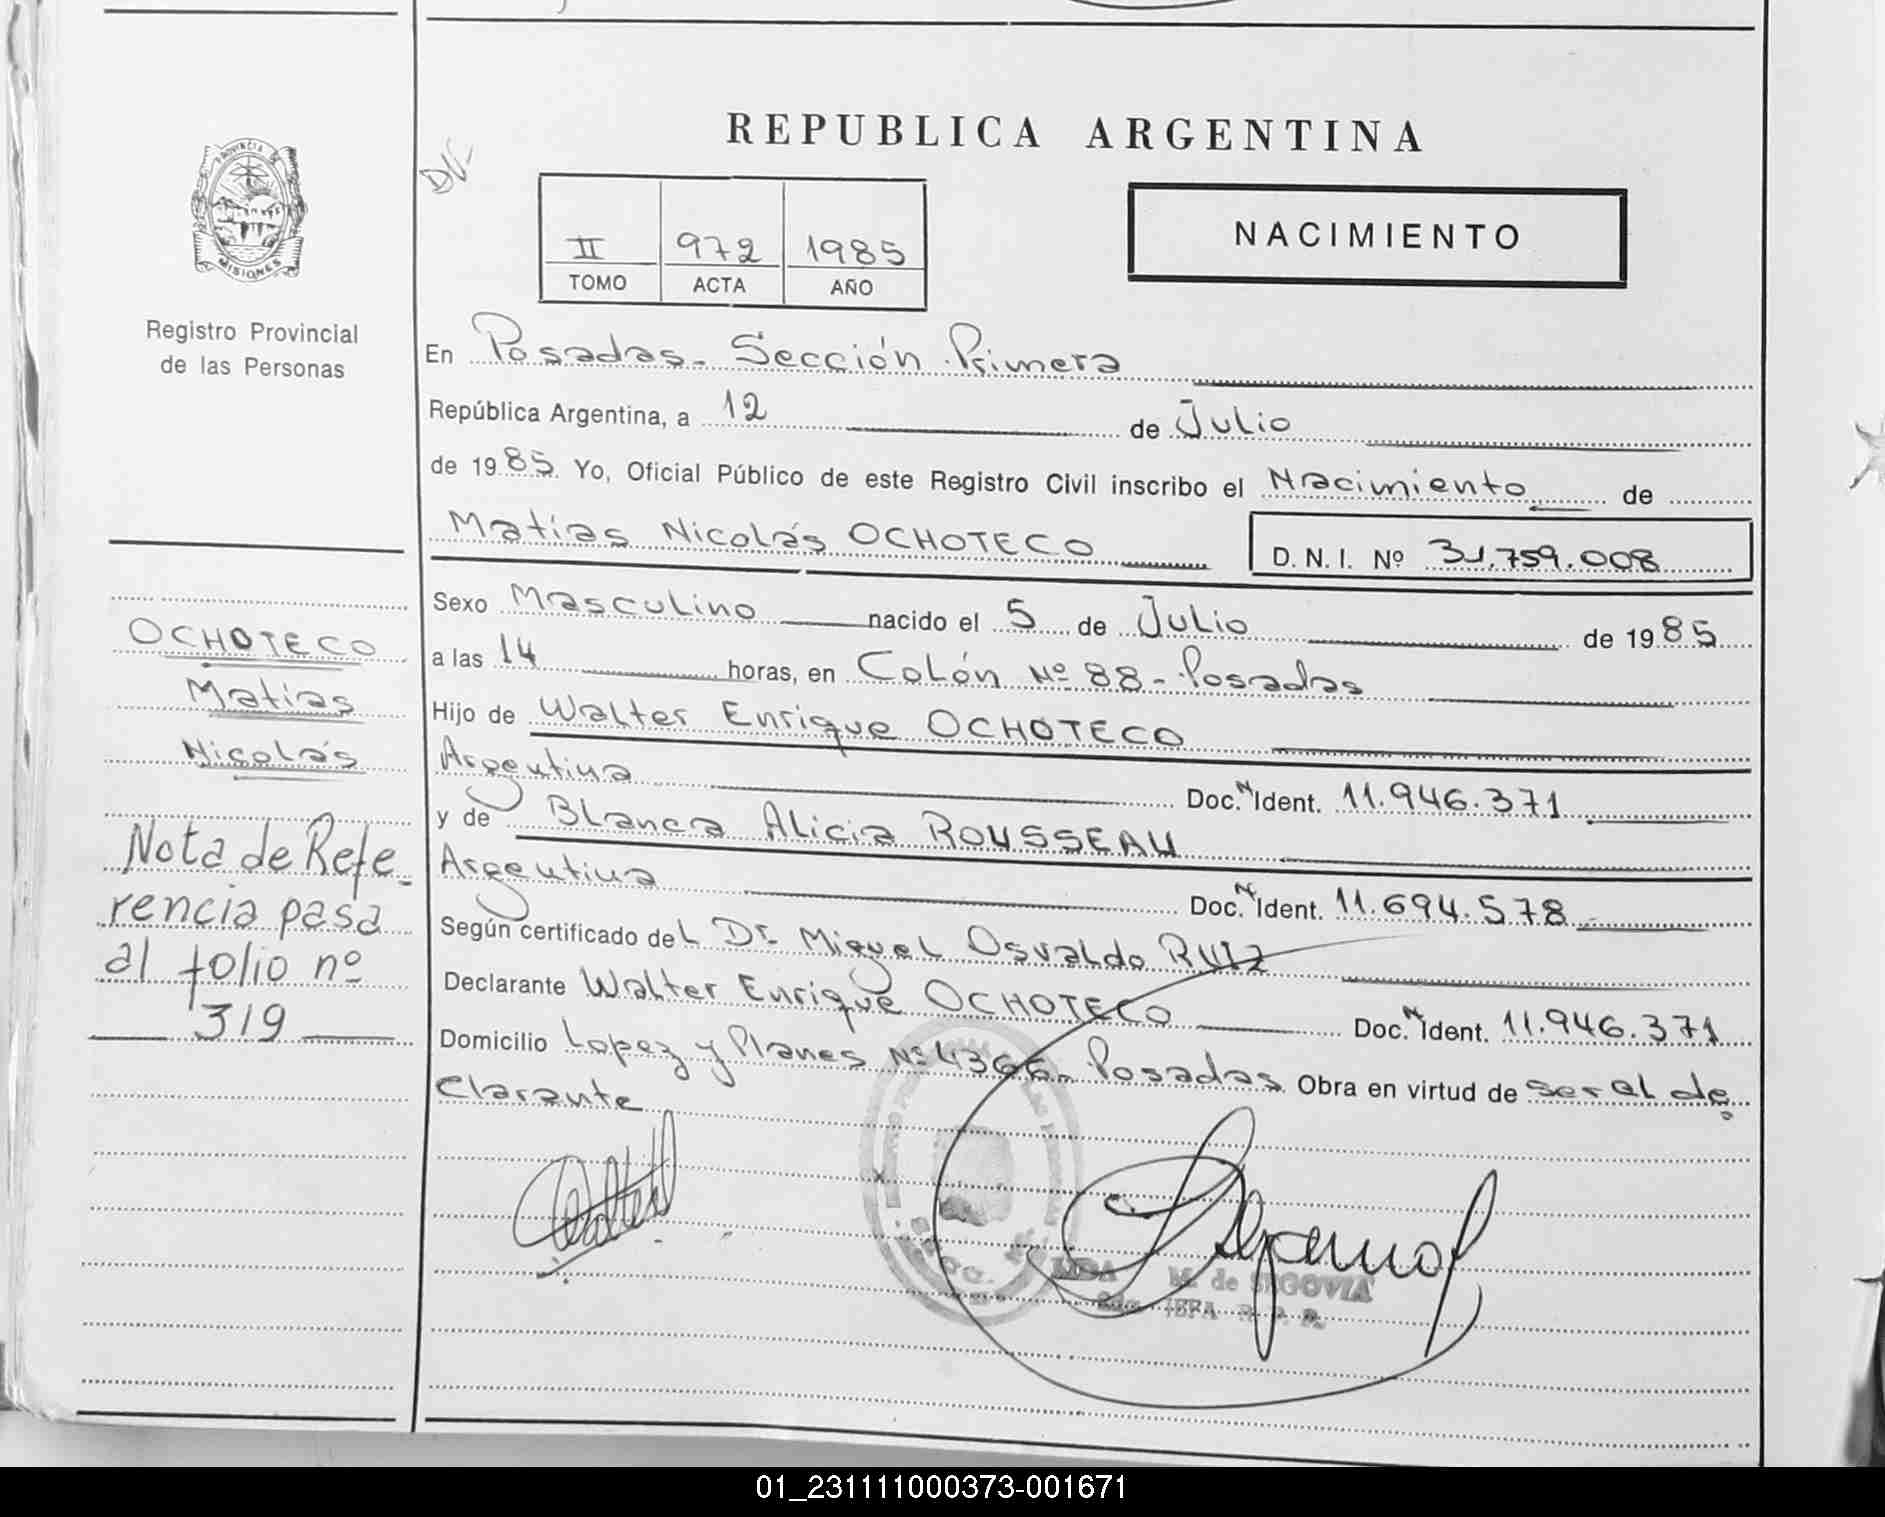 REPUBLICA ARGENTINA
PROVINCIA DE
MISIONES
Registro Provincial
de las Personas
II 972 1985
TOMO ACTA AÑO
NACIMIENTO
En Posadas - Sección Primera
República Argentina, a 12 de Julio
de 1985. Yo, Oficial Público de este Registro Civil inscribo el Nacimiento de
Matías Nicolás OCHOTECO D. N. I. Nº 31.759.008
Sexo Masculino nacido el 5 de Julio de 1985
a las 14 horas, en Colón Nº 88 - Posadas
Hijo de Walter Enrique OCHOTECO
Argentina Doc. N Ident. 11.946.371
y de Blanca Alicia ROUSSEAU
Argentina Doc. N Ident. 11.694.578
Según certificado del Dr. Miguel Osvaldo RUIZ
Declarante Walter Enrique OCHOTECO Doc. N Ident. 11.946.371
Domicilio Lopez y Planes Nº 4366 - Posadas Obra en virtud de ser el de
clarante
M. de SEGOVIA
OCHOTECO
Matías
Nicolás
Nota de Refe-
rencia pasa
al folio nº
319
01_231111000373-001671